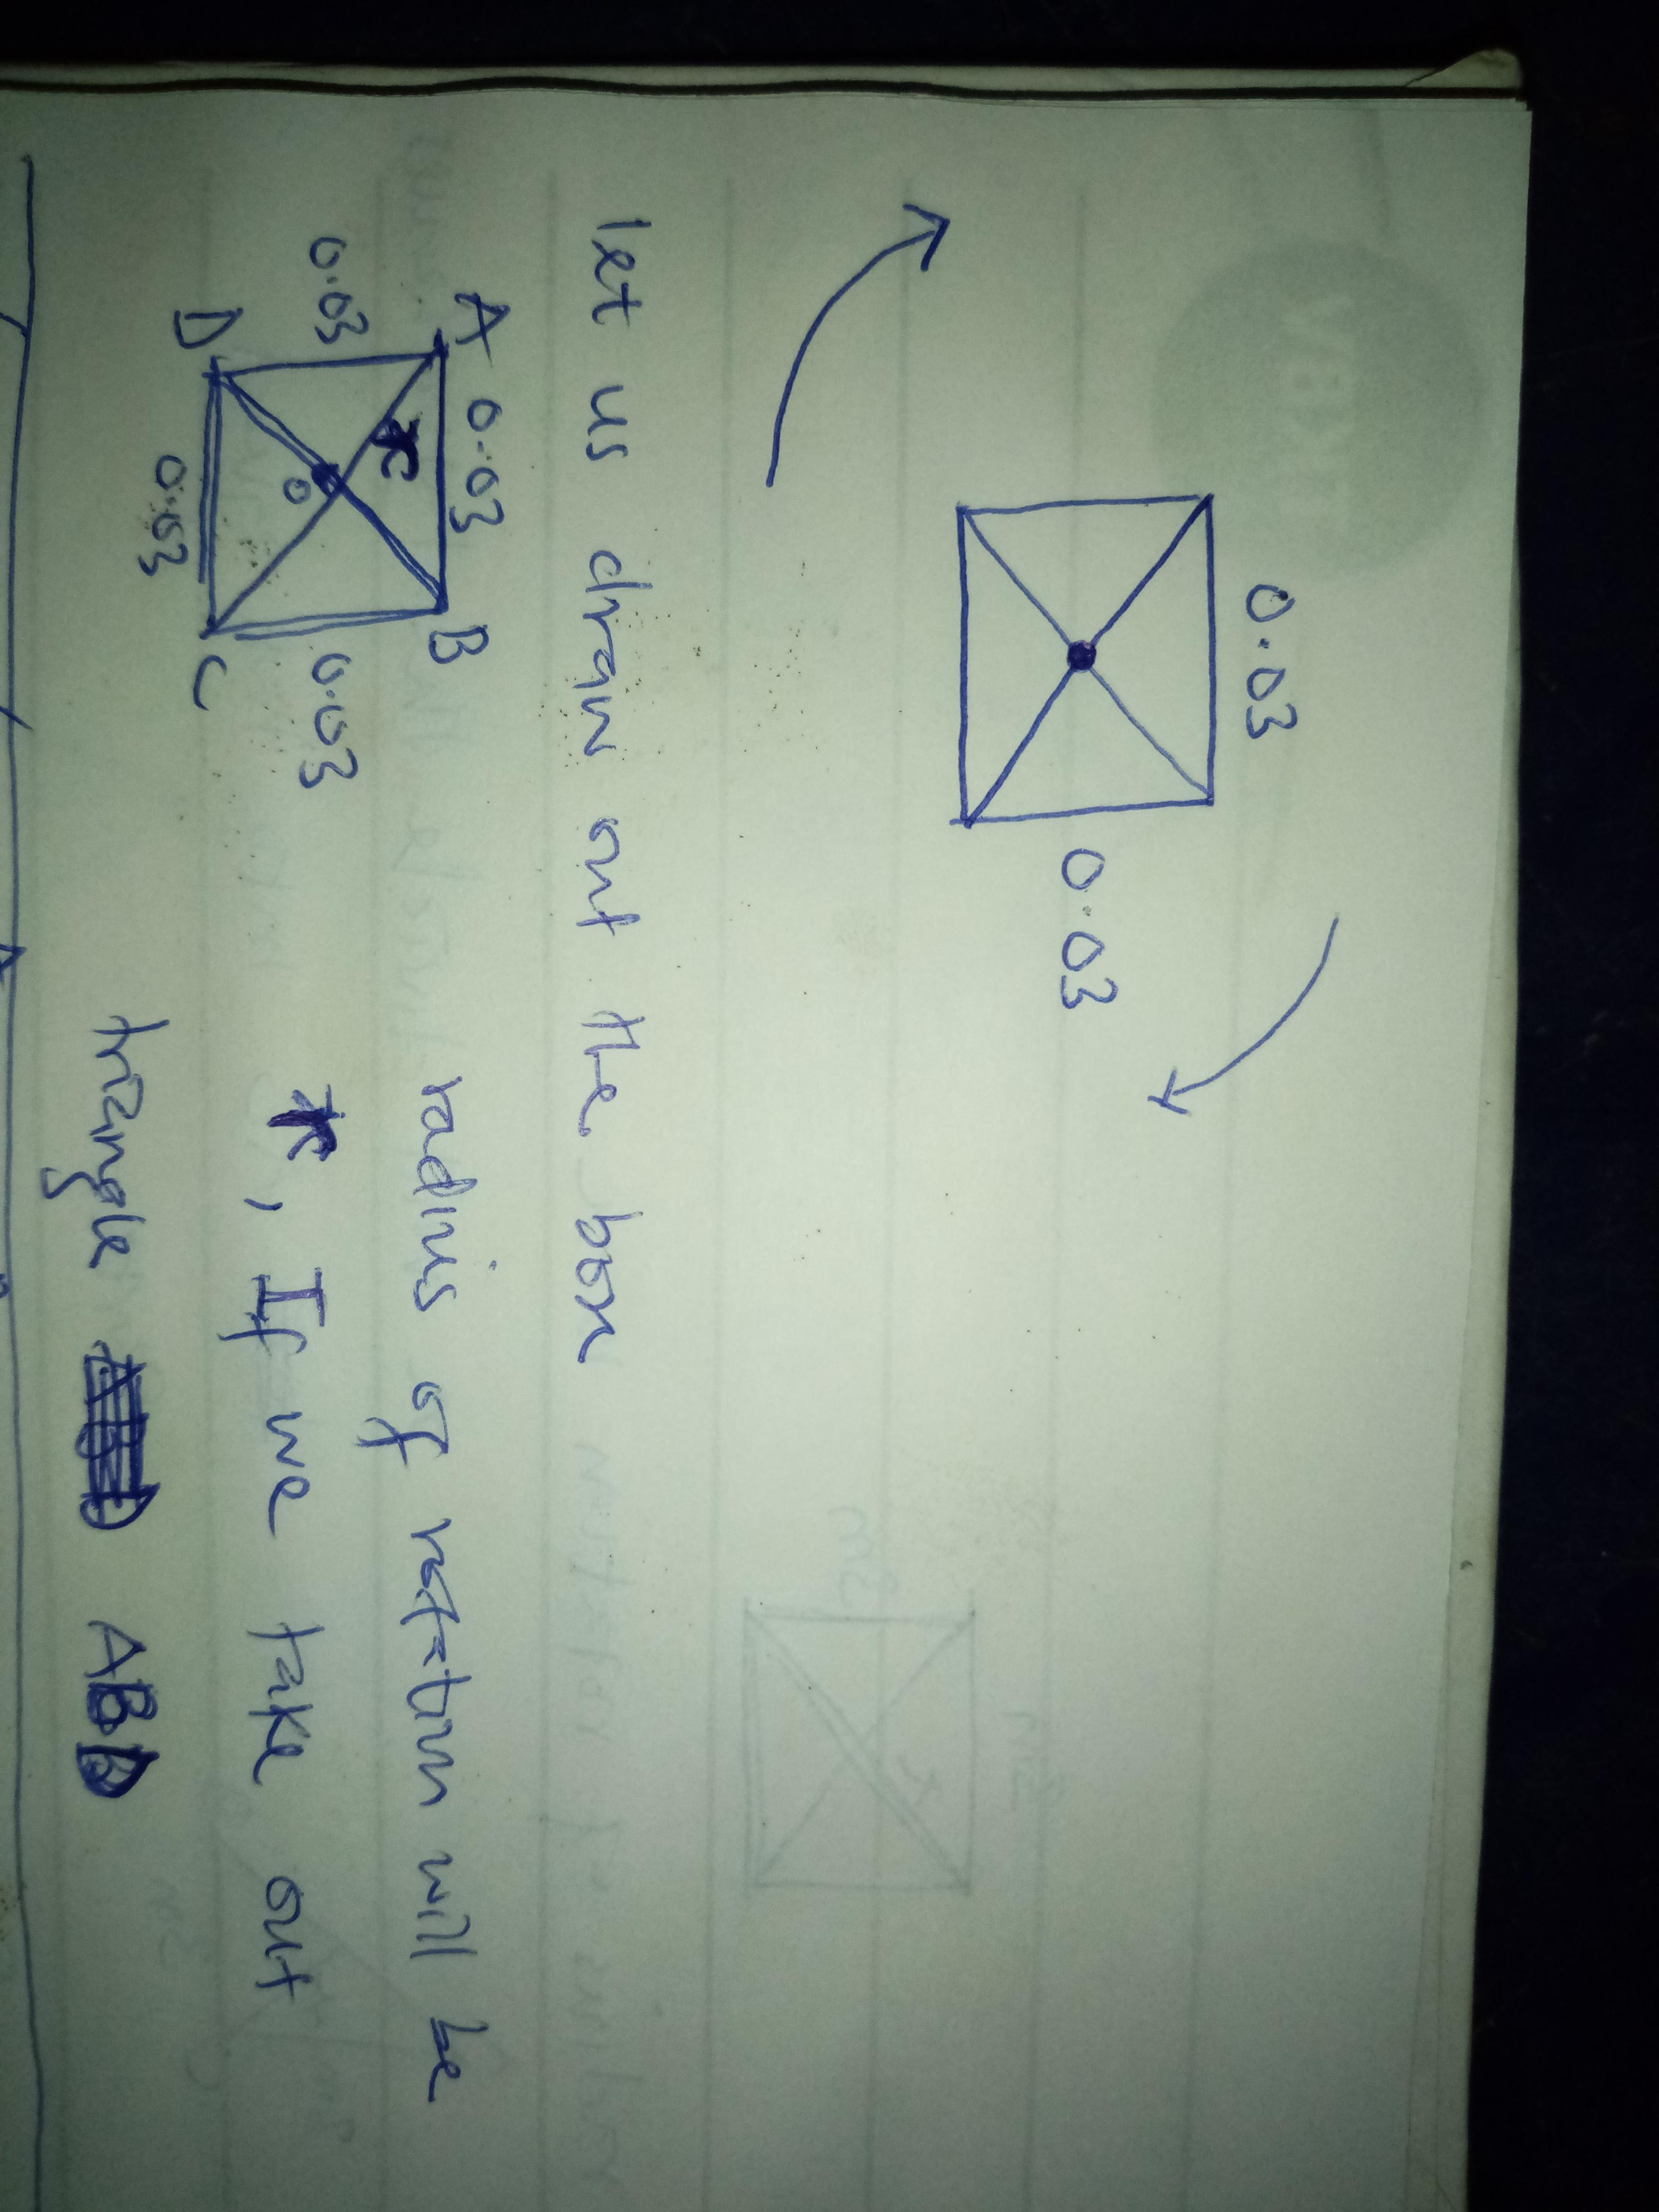 0.03
0.03
let us draw out the box
A 0.03 B
0.03
r
0
0.03
D
0.03
C
radius of rotation will be
r, If we take out
triangle ABD